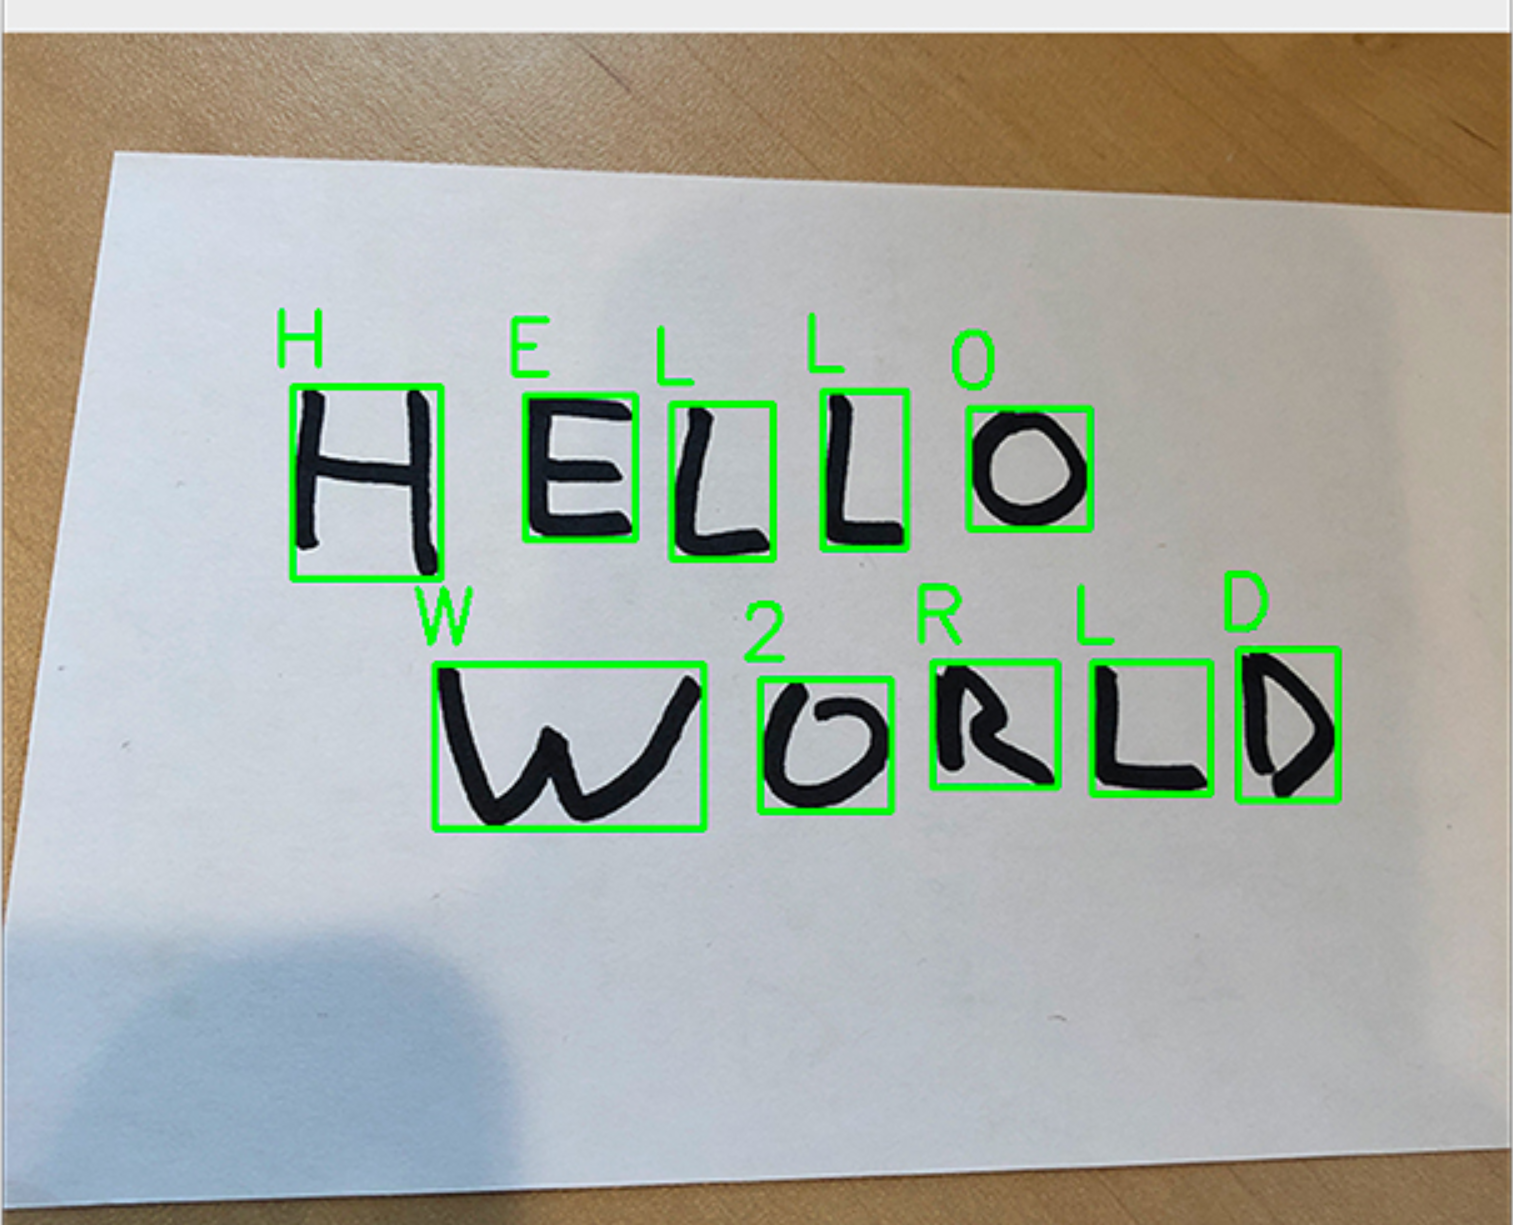 H E L L O
HELLO
W 2 R L D
WORLD